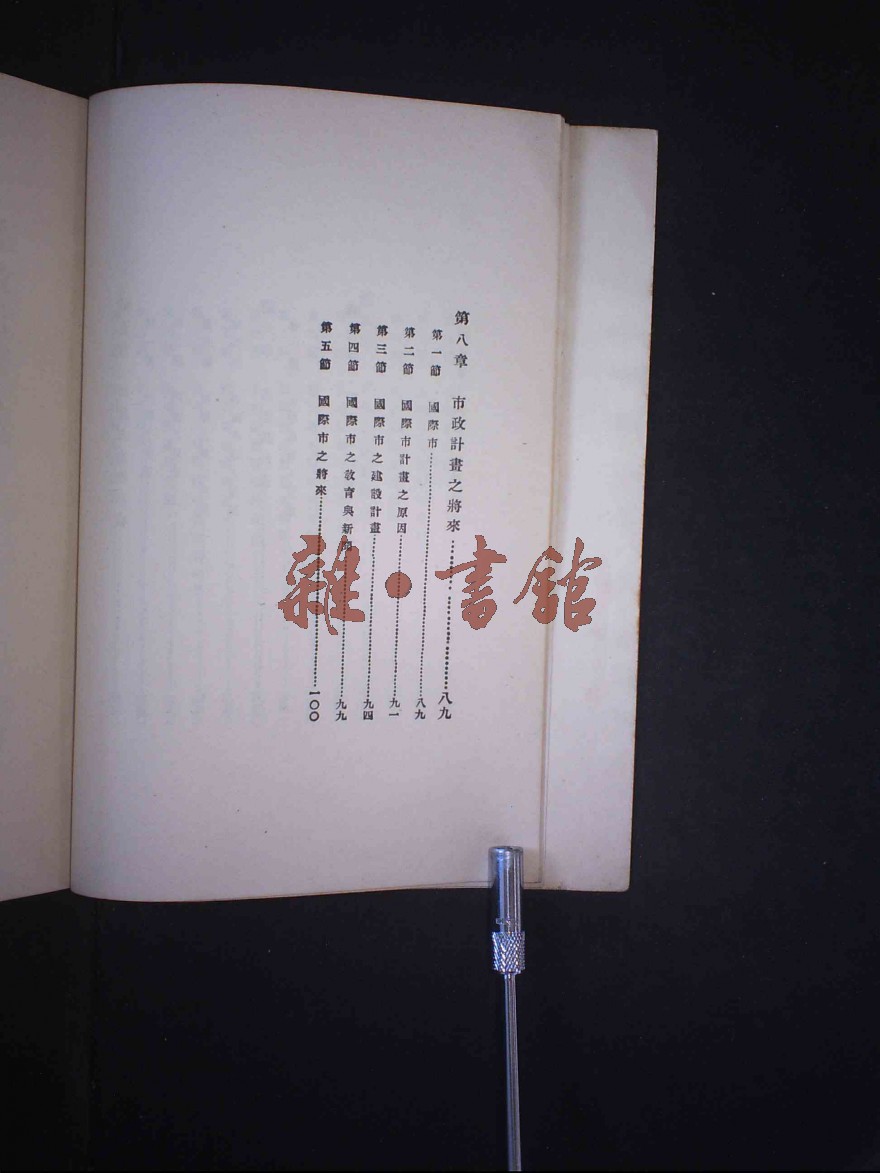 第八章 市政計畫之將來………………八九
第一節 國際市………………八九
第二節 國際市計畫之原因………………九一
第三節 國際市之建設計畫………………九四
第四節 國際市之教育與新………………九九
第五節 國際市之將來………………一〇〇
雜·書館